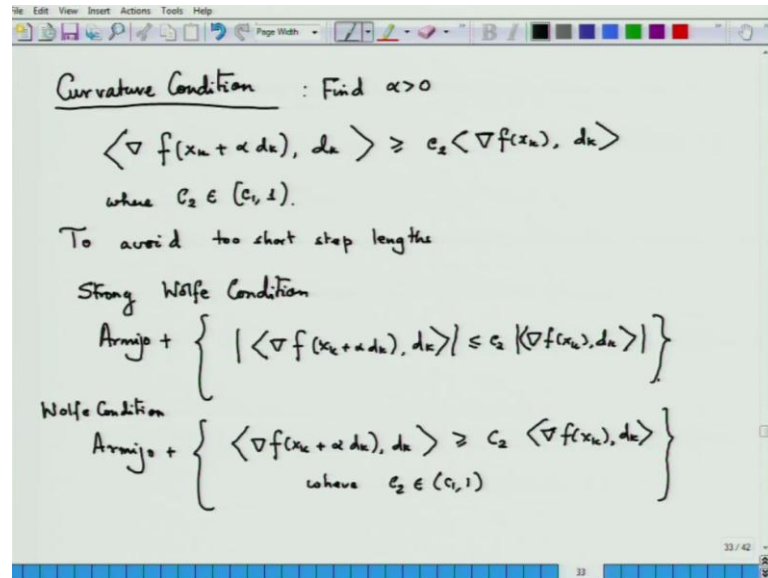 File Edit View Insert Actions Tools Help
Page Width
B I
Curvature Condition : Find α>0
⟨∇ f(xₖ + α dₖ), dₖ⟩ ≥ c₂⟨∇f(xₖ), dₖ⟩
where C₂ ∈ (c₁, 1).
To avoid too short step lengths
Strong Wolfe Condition
Armijo + { |⟨∇f(xₖ+αdₖ), dₖ⟩| ≤ c₂ |⟨∇f(xₖ), dₖ⟩| }
Wolfe Condition
Armijo + { ⟨∇f(xₖ + α dₖ), dₖ⟩ ≥ C₂ ⟨∇f(xₖ), dₖ⟩ }
where c₂ ∈ (c₁, 1)
33 / 42
33